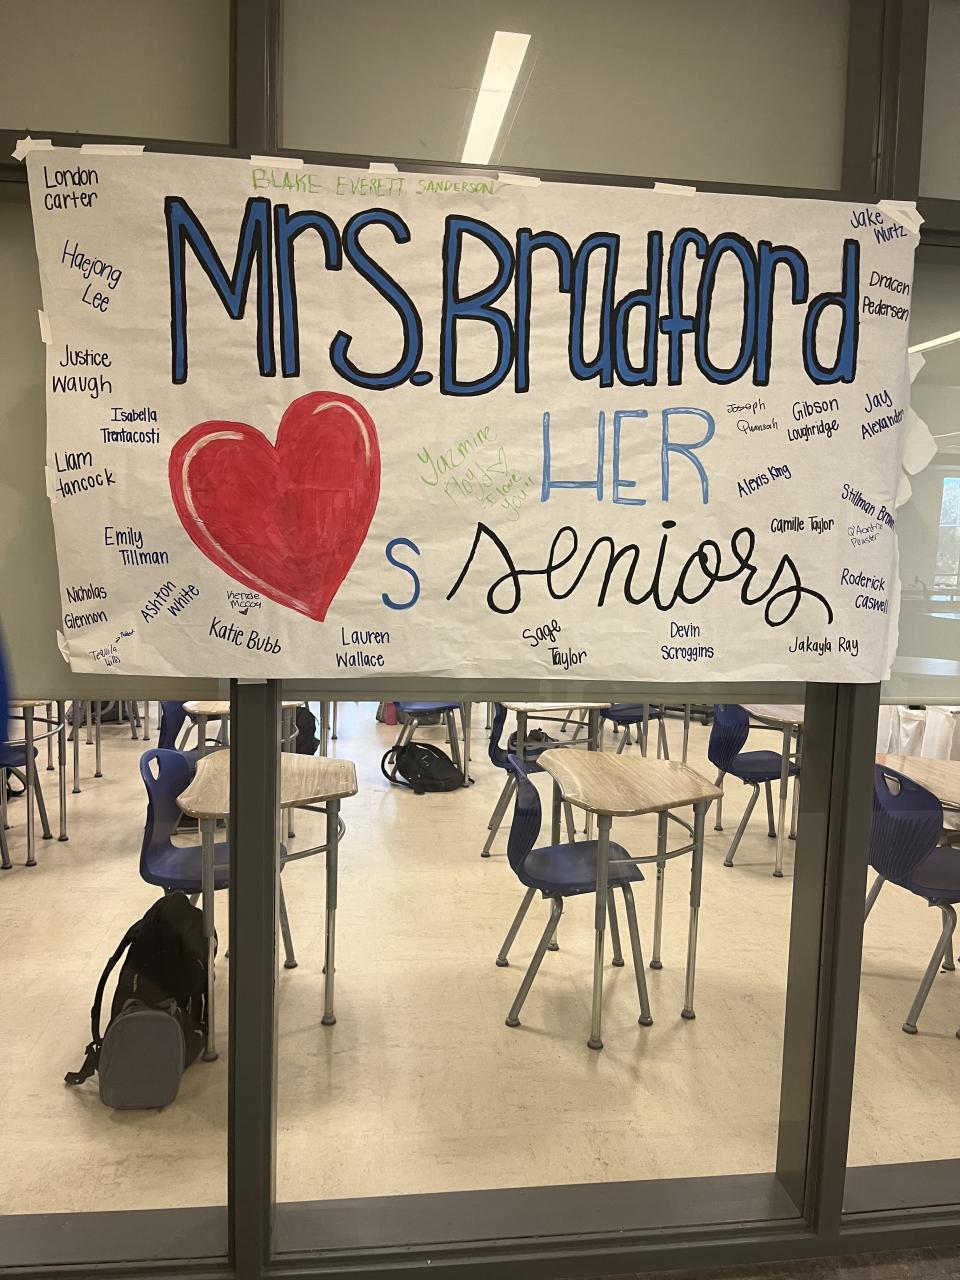 BLAKE EVERETT SANDERSON
Mrs. Bradford
S
HER
seniors
London
Carter
Haejong
Lee
Justice
Waugh
Isabella
Trentacosti
Liam
Hancock
Emily
Tillman
Nicholas
Glennon
Ashton
White
McCoy
Katie Bubb
Lauren
Wallace
Sage
Taylor
Devin
Scroggins
Jakayla Ray
Yazmine
I love
you!!
Jake
Wurtz
Dracen
Pedersen
Joseph
Quansah
Gibson
Loughridge
Jay
Alexander
Alexis King
Camille Taylor
Stillman Brown
Roderick
Caswell